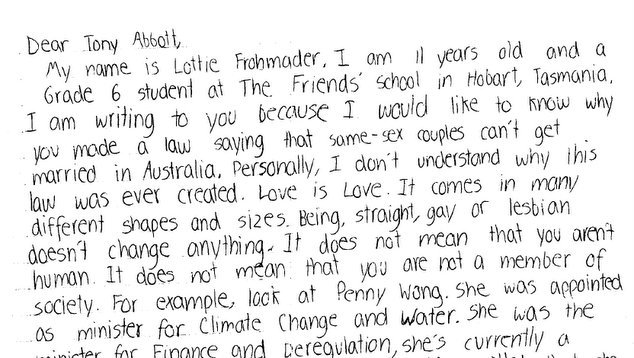 Dear Tony Abbott,
My name is Lottie Frohmader. I am 11 years old and a
Grade 6 student at The Friends' School in Hobart, Tasmania.
I am writing to you because I would like to know why
you made a law saying that same-sex couples can't get
married in Australia. Personally, I don't understand why this
law was ever created. Love is Love. It comes in many
different shapes and sizes. Being, straight, gay or lesbian
doesn't change anything. It does not mean that you aren't
human. It does not mean that you are not a member of
society. For example, look at Penny Wong. She was appointed
as minister for Climate Change and Water. She was the
minister for Finance and Deregulation, she's currently a